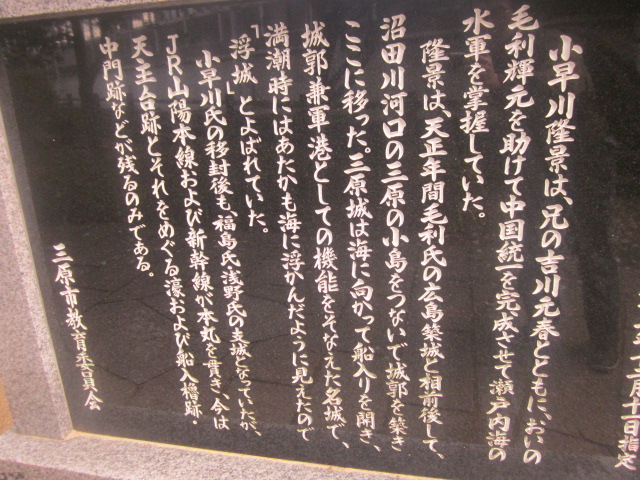 年十二月十一日指定
小早川隆景は、兄の吉川元春とともに、おいの
毛利輝元を助けて中国統一を完成させて瀬戸内海の
水軍を掌握していた。
隆景は、天正年間毛利氏の広島築城と相前後して、
沼田川河口の三原の小島をつないで城郭を築き
ここに移った。三原城は海に向かって船入りを開き、
城郭兼軍港としての機能をそなえた名城で、
満潮時にはあたかも海に浮かんだように見えたので
「浮城」とよばれていた。
小早川氏の移封後も、福島氏浅野氏の支城となっていたが、
JR山陽本線および新幹線が本丸を貫き、今は
天主台跡とそれをめぐる濠および船入櫓跡・
中門跡などが残るのみである。
三原市教育委員会